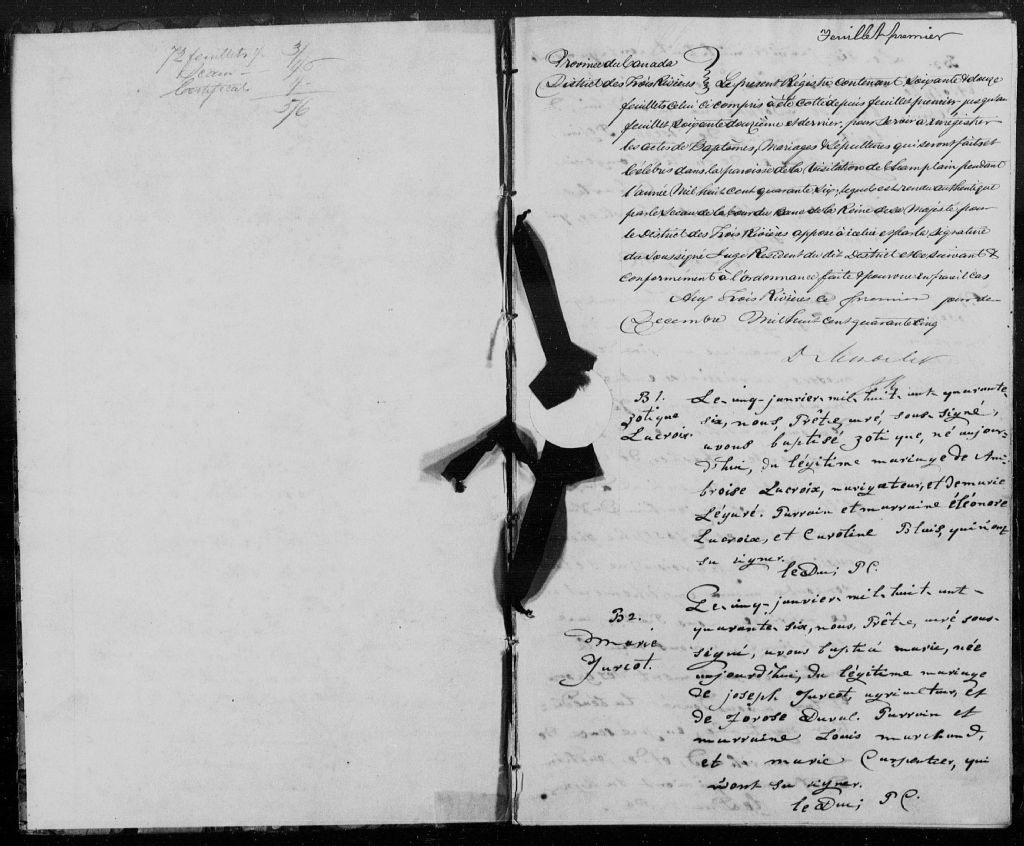 72 feuillets
3/
1/6
Sceau
Certificat
5/6
Feuillet premier
Province du Canada
District des Trois Rivières Le present Régistre contenant soixante & douze
feuillets celui ci compris a été cotté depuis feuillet premier jusqu'au
feuillet soixante douzième et dernier, pour servir à enrégistrer
les actes de Baptêmes, Mariages & Sépultures qui seront faits et
Célébrés dans la paroisse de la Visitation de Champlain pendant
l'année Mil huit cent quarante Six; lequel est rendu authentique
par le Sceau de la Cour du Banc de la Reine de sa Majesté pour
le District des Trois Rivières apposé à icelui et par la signature
du Soussigné Juge Resident du dit District et ce suivant &
conformément à l'ordonnance faite & pourvue en pareil cas
Aux Trois Rivières ce premier jour de
Decembre Mil huit cent quarante cinq
B 1.
Zotique
Lacroix
Le cinq janvier mil huit cent quarante
six, nous, Prêtre, curé, sous-signé,
avons baptisé Zotique, né aujour-
d'hui, du légitime mariage de Am-
broise Lacroix, navigateur, et de marie
Légaré. Parrain et marraine éléonore
Lacroix, et Caroline Blais, qui n'ont
su signer.
B 2.
Marie
Turcot.
Le cinq janvier mil huit cent
quarante six, nous, Prêtre, curé, sous-
signé, avons baptisé marie, née
aujourd'hui, du légitime mariage
de joseph Turcot, agriculteur, et
de Jorose Duval. Parrain et
marraine Louis marchand,
et marie Carpentier, qui
n'ont su signer.